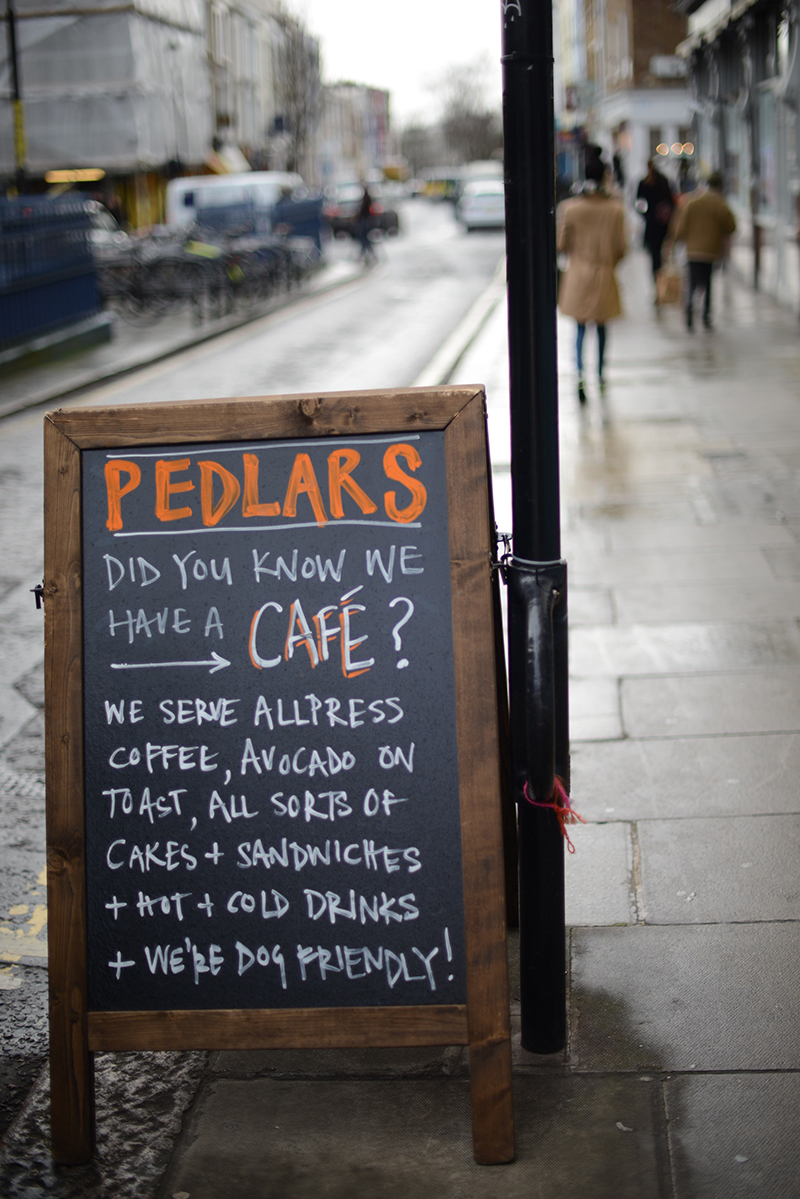 PEDLARS
DID YOU KNOW WE
HAVE A CAFÉ?
WE SERVE ALLPRESS
COFFEE, AVOCADO ON
TOAST, ALL SORTS OF
CAKES + SANDWICHES
+ HOT + COLD DRINKS
+ WE'RE DOG FRIENDLY!